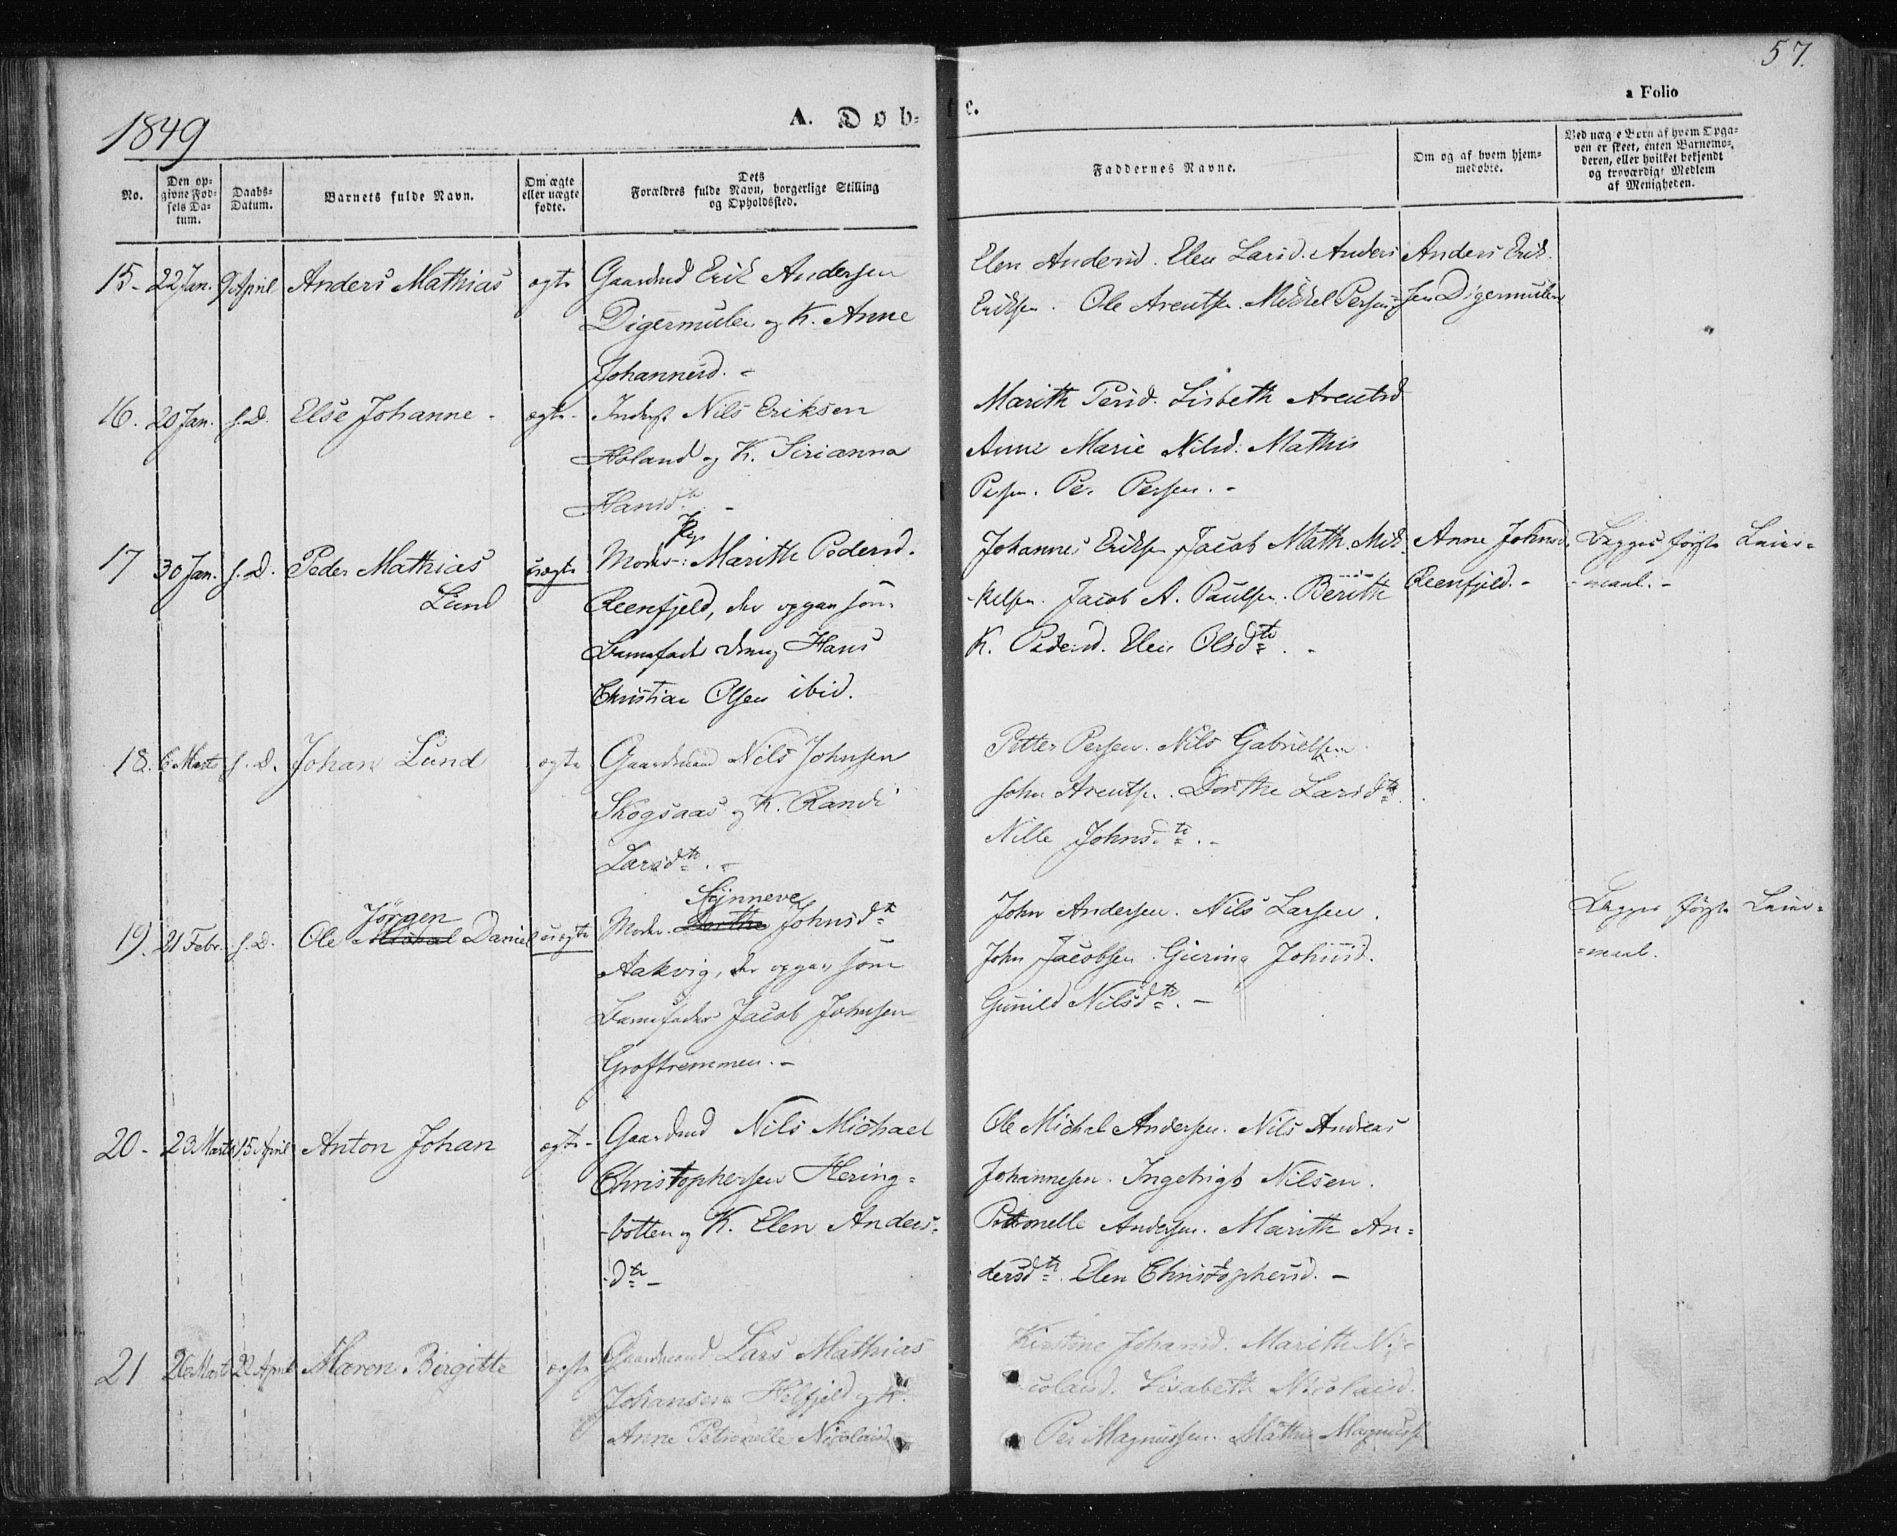 57.
a Folio
1849
A. Døb-
e.
No.
Den op-
givne Fød-
sels Da-
tum.
Daabs-
Datum.
Barnets fulde Navn.
Om ægte
eller uægte
fødte.
Dets
Forældres fulde Navn, borgerlige Stilling
og Opholdssted.
Faddernes Navne.
Om og af hvem hjem-
medøbte.
Ved uægte Børn af hvem Opga-
ven er skeet, enten Barnemo-
deren, eller hvilket bekjendt
og troværdigt Medlem
af Menigheden.
15- 22 Jan. 9 April Anders Mathias ægte Gaardmd Erik Andersen
Digermulen og K. Anne
Johannesd. -
Elen Andersd. Elen Larsd. Anders
Eriksen. Ole Arentsen. Mikkel Persen
Anders Erik-
sen Digermulen
16. 20 Jan. s. D. Else Johanne - ægte- Inderst Nils Eriksen
Holand og K. Sirianna
Hansdtr. -
Marith Persd. Lisbeth Arentsd
Anne Marie Nilsd. Mathis
Persen. Per Persen. -
17 30 Jan. s. D. Peder Mathias
Lund
uægte Moder: Pige Marith Pedersd.
Reenfjeld, der opgav som
Barnefader dreng Hans
Christian Olsen ibid.
Johannes Eriksen Jacob Math. Mik-
kelsen. Jacob A. Paulsen. Berith
K. Pedersd. Elen Olsdtr. -
Anne Johnsd.
Reenfjeld. -
Begges første Leier-
=maal. -
18. 6 Marts s. D. Johan Lund ægte Gaardmand Nils Johnsen
Skogsaas og K. Randi
Larsdtr. -
Petter Persen. Nils Gabrielsen.
John Arentsen. Dorthe Larsdtr.
Nille Johnsdtr. -
19. 21 Febr. s. D. Ole Michal Jörgen Daniel uægte Moder. Dorthe Synneve Johnsdtr
Aakvig, der opgav som
Barnefader Jacob Johnsen
Groftremmen. -
John Andersen. Nils Larsen.
John Jacobsen. Giering Johnsd.
Gunild Nilsdtr. -
Begges første Leier-
=maal.
20- 23 Marts 15 April Anton Johan ægte- Gaardmd Nils Michael
Christophersen Hering-
-botten og K. Elen Anders-
dtr -
Ole Michel Andersen. Nils Andreas
Johannesen. Ingebrigt Nilsen.
Petronelle Andersen. Marith An-
dersdtr. Elen Christophersd. -
21 26 Marts 22 April Maren Birgitte ægte Gaardmand Lars Mathias
Johansen Helfjeld og K.
Anne Petronelle Nicolaisd
Kirstine Johansd. Marith Ni-
colaisd. Lisabeth Nicolaisd.
Per Magnussen. Mathis Magnussen